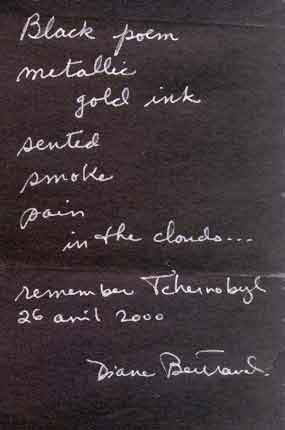 Black poem
metallic
gold ink
sented
smoke
pain
in the clouds...
remember Tchernobyl
26 avril 2000
Diane Bertrand.